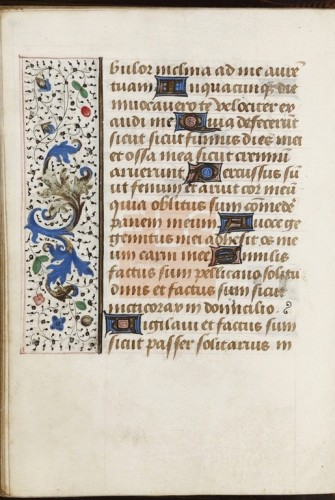 bulor inclina ad me aurē
tuam In quacūq; die
inuocauero te velociter ex
audi me Quia defecerūt
sicut sicut fumus dies mei
et ossa mea sicut cremiū
aruerunt Percussus sū
ut fenum et aruit cor meū
quia oblitus sum comedē
panem meum A uoce ge
gemitus mei adhesit os me
um carni mee Similis
factus sum pellicano solitu
dinis et factus sum sicut
nicticorax in domicilio
Vigilaui et factus sum
sicut passer solitarius in